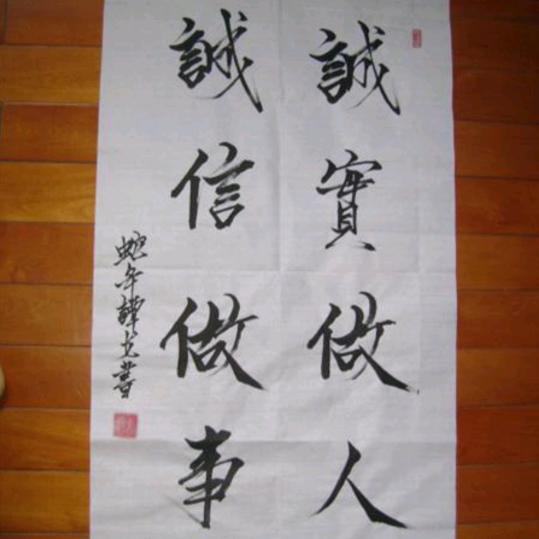 誠實做人
誠信做事
蛇年譚光書